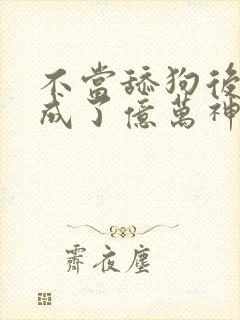 不當舔狗後
成了億萬神
霽夜塵